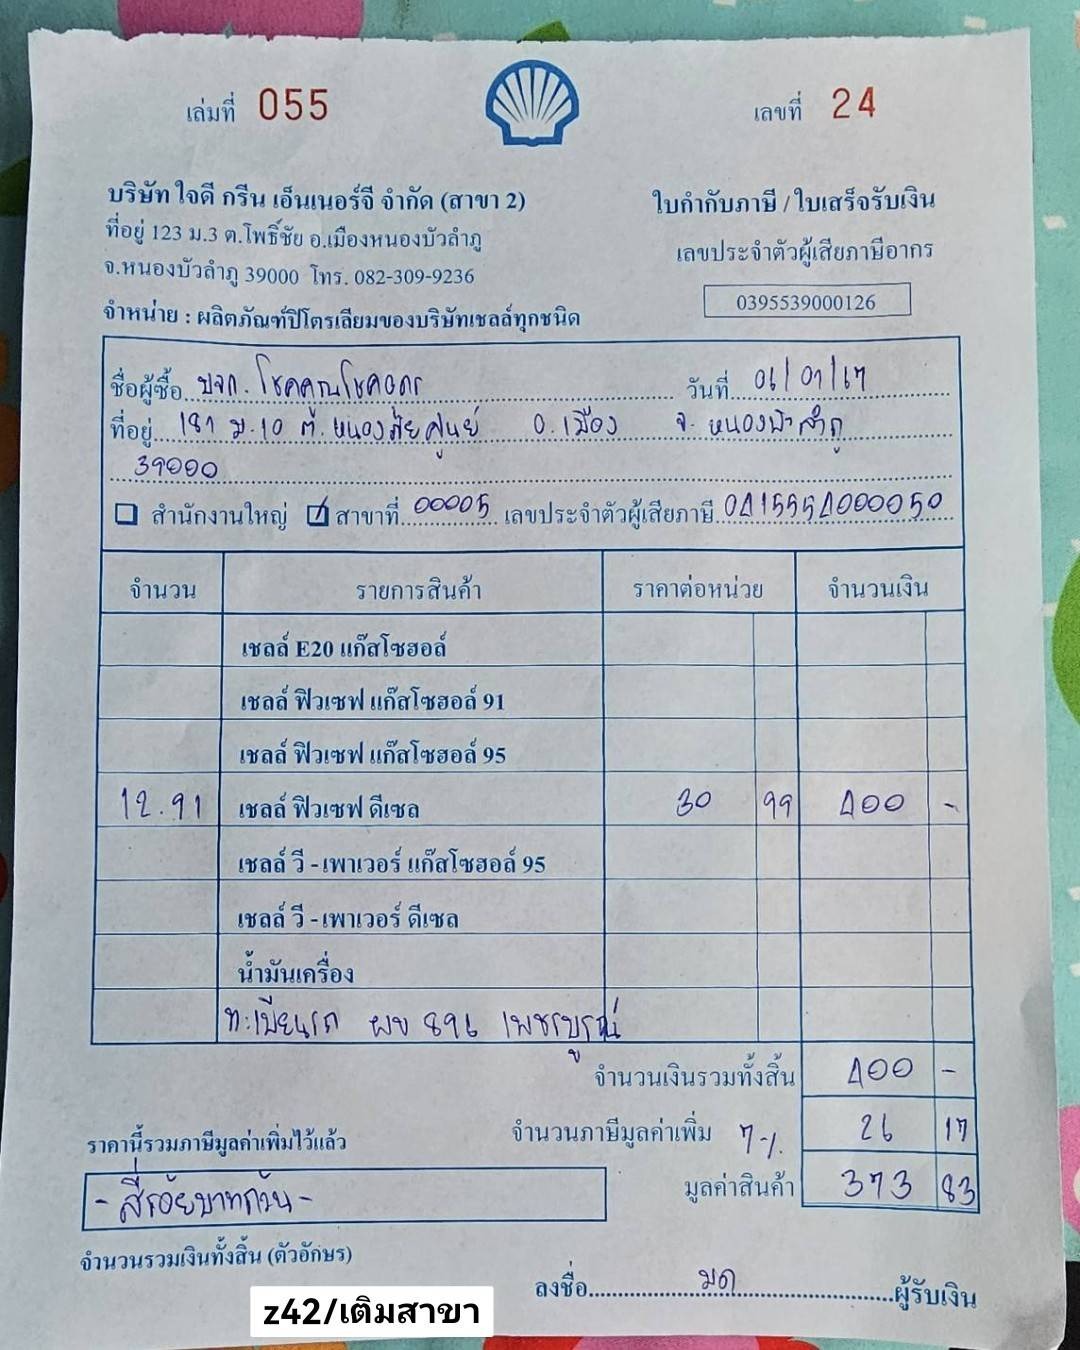 เล่มที่ 055
เลขที่ 24
บริษัท ใจดี กรีน เอ็นเนอร์จี จำกัด (สาขา 2)
ที่อยู่ 123 ม.3 ต.โพธิ์ชัย อ.เมืองหนองบัวลำภู
จ.หนองบัวลำภู 39000 โทร. 082-309-9236
จำหน่าย : ผลิตภัณฑ์ปิโตรเลียมของบริษัทเชลล์ทุกชนิด
ใบกำกับภาษี / ใบเสร็จรับเงิน
เลขประจำตัวผู้เสียภาษีอากร
0395539000126
ชื่อผู้ซื้อ หจก. โชคคูณโชคอดร วันที่ 06/01/67
ที่อยู่ 181 ม.10 ต.หนองภัยศูนย์ อ.เมือง จ.หนองบัวลำภู
39000
สำนักงานใหญ่ สาขาที่ 00005 เลขประจำตัวผู้เสียภาษี 0415554000050
จำนวน รายการสินค้า ราคาต่อหน่วย จำนวนเงิน
เชลล์ E20 แก๊สโซฮอล์
เชลล์ ฟิวเซฟ แก๊สโซฮอล์ 91
เชลล์ ฟิวเซฟ แก๊สโซฮอล์ 95
12.91 เชลล์ ฟิวเซฟ ดีเซล 30 99 400 -
เชลล์ วี - เพาเวอร์ แก๊สโซฮอล์ 95
เชลล์ วี - เพาเวอร์ ดีเซล
น้ำมันเครื่อง
ทะเบียนรถ ผข 896 เพชรบูรณ์
จำนวนเงินรวมทั้งสิ้น 400 -
ราคานี้รวมภาษีมูลค่าเพิ่มไว้แล้ว
จำนวนภาษีมูลค่าเพิ่ม 7% 26 17
มูลค่าสินค้า 373 83
- สี่ร้อยบาทถ้วน -
จำนวนรวมเงินทั้งสิ้น (ตัวอักษร)
ลงชื่อ มด ผู้รับเงิน
z42/เติมสาขา